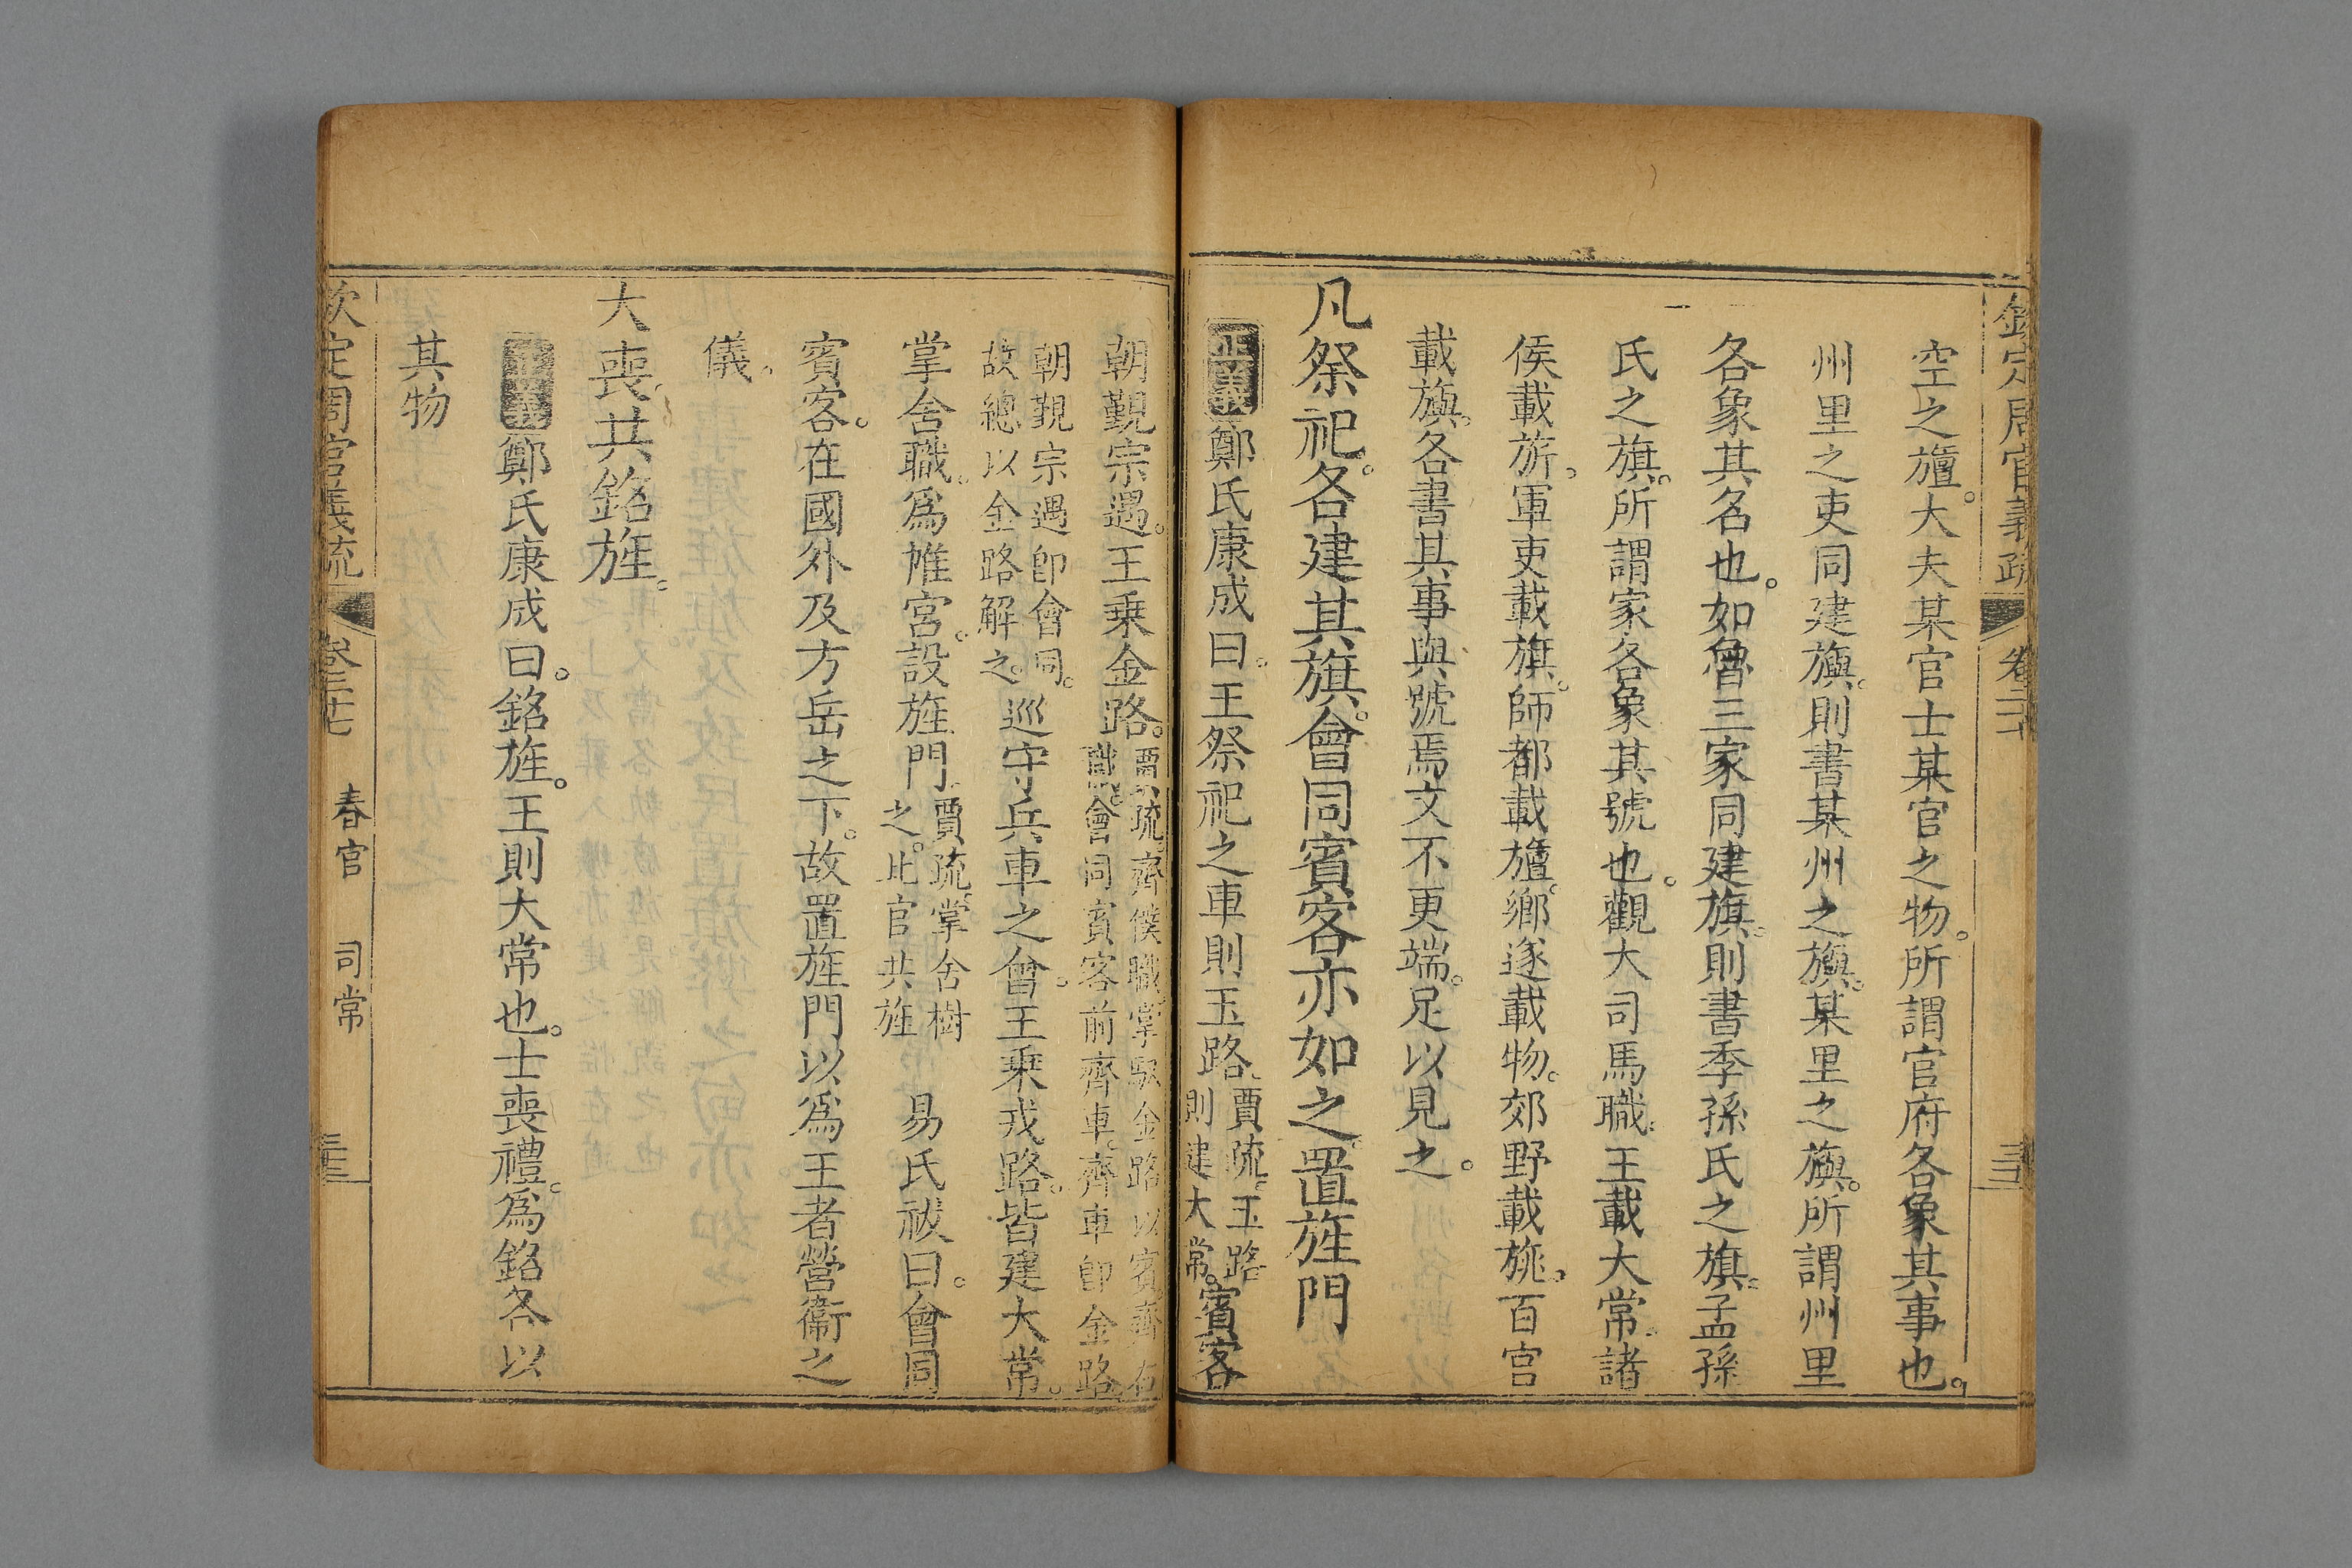 欽定周官義疏 卷二十七 三五
空之旜。大夫某官士某官之物。所謂官府各象其事也。
州里之吏同建旟。則書某州之旟。某里之旟。所謂州里
各象其名也。如魯三家同建旗。則書季孫氏之旗。孟孫
氏之旗。所謂家各象其號也。觀大司馬職。王載大常。諸
侯載旂。軍吏載旗。師都載旜。鄉遂載物。郊野載旐。百官
載旟。各書其事與號焉。文不更端。足以見之。
凡祭祀。各建其旗。會同賓客亦如之。置旌門
正義鄭氏康成曰。王祭祀之車則玉路。賈疏。玉路則建大常。賓客
朝覲宗遇。王乗金路。賈疏。齊僕職。掌馭金路以賓。齊右職。會同賓客前齊車。齊車卽金路。
朝覲宗遇卽會同。故總以金路解之。巡守兵車之會。王乗戎路。皆建大常。
掌舍職。爲帷宮。設旌門。賈疏。掌舍樹之。此官共旌 易氏祓曰。會同
賓客。在國外及方岳之下。故置旌門以爲王者營衞之
儀。
大喪。共銘旌。
正義鄭氏康成曰。銘旌。王則大常也。士喪禮。爲銘各以
其物
欽定周官義疏 卷二十七 春官 司常